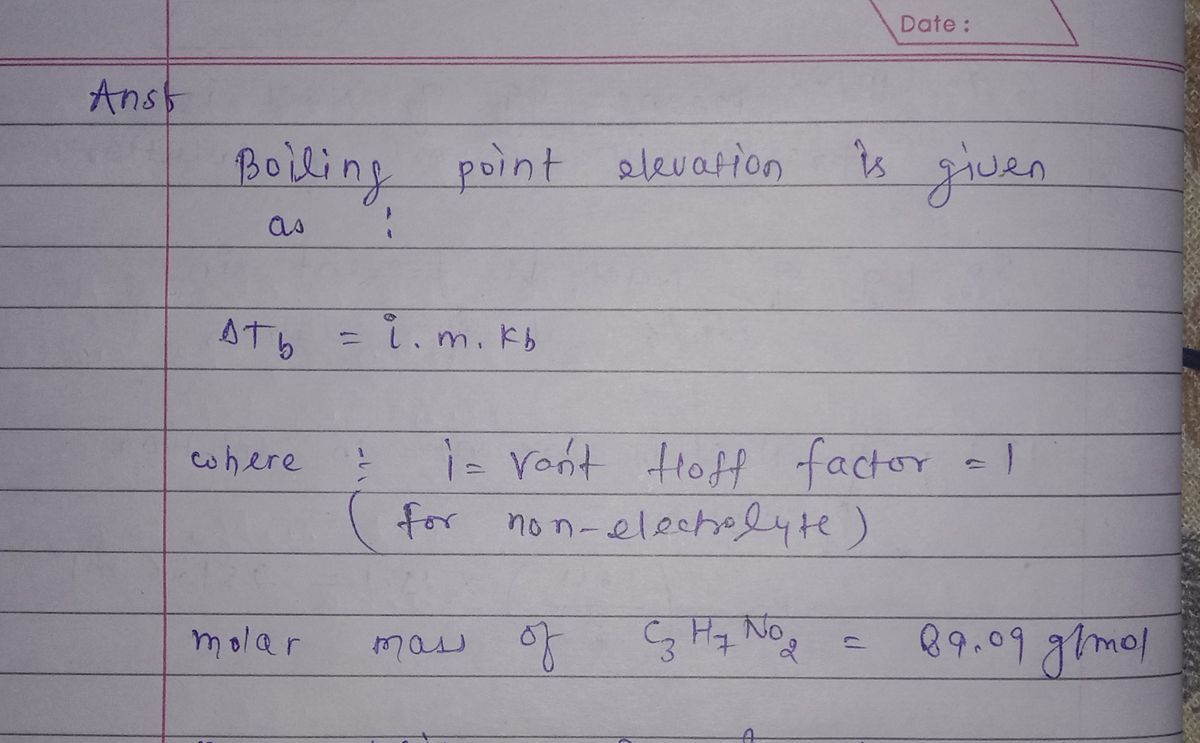 Date :
Ans :
Boiling point elevation is given
as :
ΔTb = i. m. Kb
where : i = Van't Hoff factor = 1
( for non-electrolyte )
molar mass of C3H7NO2 = 89.09 g/mol